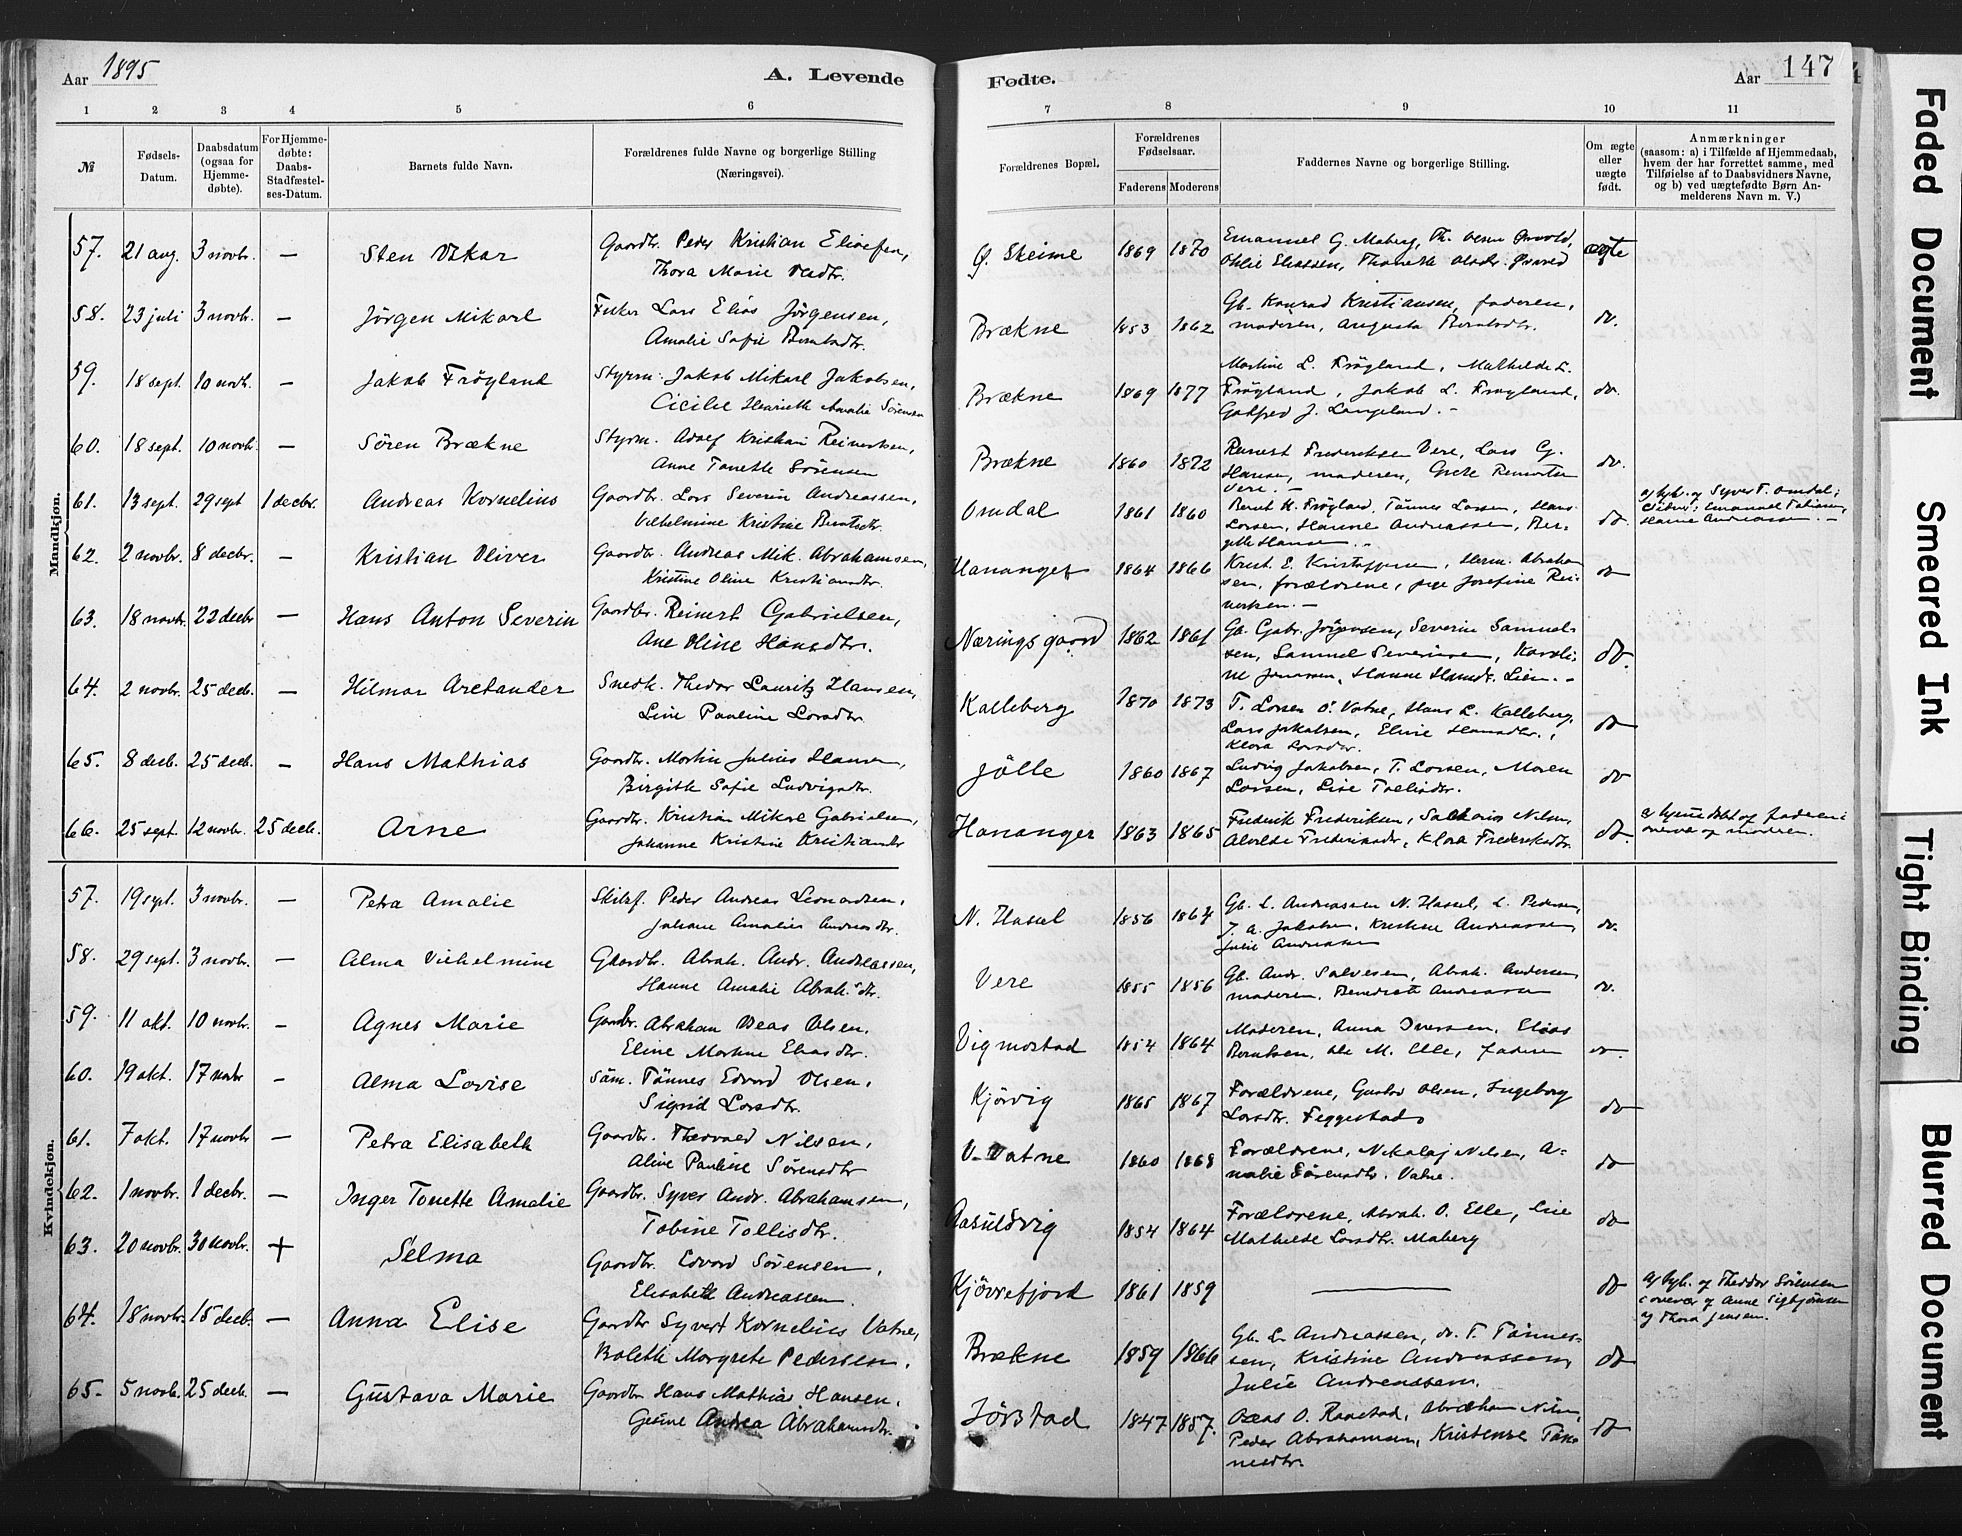 Aar 1895
A. Levende
Fødte.
Aar 147
1 2 3 4 5 6 7 8 9 10 11
№
Fødsels-
Datum.
Daabsdatum
(ogsaa for
Hjemme-
døbte).
For Hjemme-
døbte:
Daabs-
Stadfæstel-
ses-Datum.
Barnets fulde Navn.
Forældrenes fulde Navne og borgerlige Stilling
(Næringsvei).
Forældrenes Bopæl.
Forældrenes
Fødselsaar.
Faderens Moderens
Faddernes Navne og borgerlige Stilling.
Om ægte
eller
uægte
født.
Anmærkninger
(saasom: a) i Tilfælde af Hjemmedaab,
hvem der har forrettet samme, med
Tilføielse af to Daabsvidners Navne,
og b) ved uægtefødte Børn An-
melderens Navn m. V.)
Mandkjøn.
57. 21 aug. 3 novbr. — Sten Oskar
Gaardbr. Peder Kristian
Thora Marie
Ø. Skeime 1869 1870
Emanuel G. Maberg, Th.
ægte
58. 23 juli 3 novbr. — Jørgen Mikael
Fisker Lars Elias Jørgensen,
Amalie Sofie
Brækne 1853 1862
Gb. Konrad Kristiansen, faderen,
moderen, Augusta
do.
59. 18 sept. 10 novb. — Jakob Frøyland
Styrm. Jakob Mikael Jakobsen,
Cicilie Henriette Amalie Sørensen
Brækne 1869 1877
Martine L. Frøyland, Mathilde L.
Frøyland, Jakob L. Frøyland,
Gotfred J. Langeland. –
do.
60. 18 sept. 10 novb. — Søren Brækne
Styrm. Adolf Kristian Reinertsen,
Anne Tonette Sørensen
Brækne 1860 1872
Reinert Frederiksen Vere, Lars G.
Hansen, moderen, Grete
Vere. –
do.
61. 13 sept. 29 sept 1 decbr. Andreas Kornelius
Gaardbr. Lars Severin Andreassen,
Vilhelmine Kristine Berntsdtr.
Omdal 1861 1860
Bernt K. Frøyland, Tønnes Larsen, Hans
Larsen, Hanne Andreassen, Ber-
gitte Hansen
do
Syvert T. Omdal;
Emanuel
Hanne Andreassen. –
62. 2 novbr. 8 decbr. — Kristian Oliver
Gaardbr. Andreas Mik. Abrahamsen,
Kristine Oline Kristiansdtr.
Hananger 1864 1866
Krist. E. Kristoffersen, Abraham
sen, forældrene, pige Josefine Rei-
nertsen. –
do
63. 18 novbr. 22 decbr — Hans Anton Severin
Gaardbr. Reinert Gabrielsen,
Ane Oline Hansdtr.
Næringsgaard 1862 1861
Gb. Gabr. Jørgensen, Severin Samuel-
sen, Samuel Severinsen, Karoli-
ne Hanne Hansdtr. Lien. –
do.
64. 2 novbr. 25 decb. — Hilmar Aretander
Snedk. Theodor Lauritz Hansen,
Line Pauline Larsdtr.
Kalleberg 1870 1873
T. Larsen Ø. Vatne, Hans L. Kalleberg,
Lars Jakobsen, Eline Hansdtr.,
Klara Larsdtr.
do
65. 8 decb. 25 decb. — Hans Mathias
Gaardbr. Martin Julius Hansen,
Birgitte Sofie Ludvigsdtr.
Jølle 1860 1867
Ludvig Jakobsen, T. Larsen, Maren
Larsen, Lise
do
66. 25 sept. 12 novbr. 25 decb. Arne
Gaardbr. Kristian Mikael Gabrielsen,
Johanne Kristine Kristiansdtr
Hananger 1863 1865
Frederik Frederiksen, Nilsen,
Alvilde Klara Frederiksdtr.
do.
og moderen.
Kvindekjøn.
57. 19 sept. 3 novbr. — Petra Amalie
Peder Andreas Leonardsen,
Johane Amalie Andreasdtr.
N. Hassel 1856 1864
Gb. L. Andreassen N. Hassel, L. Pedersen,
J. A. Jakobsen, Kristine Andreassen,
Julie Andreassen
do.
58. 29 sept. 3 novbr. — Alma Vilhelmine
Gaardbr. Abrah. Andr. Andreassen,
Hanne Amalie Abrah.sdtr.
Vere 1855 1856
Gb. Andr. Salvesen, Abrah. Andersen
moderen, Benedicte Andreassen
do.
59. 11 okt. 10 novbr. — Agnes Marie
Gaardbr. Abraham Beas Olsen,
Eline Martine Eliasdtr.
Vigmostad 1854 1864
Moderen, Anna Iversen, Elias
Berntsen, Ole M. Elle, faderen
do.
60. 19 okt. 17 novbr — Alma Lovise
Søm. Tønnes Edvard Olsen,
Sigrid Larsdtr.
Kjørvig 1865 1867
Forældrene, Gustav Olsen, Ingeborg
Larsdtr. Feggestad
do
61. 7 okt. 17 novbr — Petra Elisabeth
Gaardbr. Thorvald Nilsen,
Aline Pauline Sørensdtr
V. Vatne 1860 1868
Forældrene, Nikolaj Nilsen, A-
malie Sørensdtr. Vatne.
do
62. 1 novbr. 1 decbr. — Inger Tonette Amalie
Gaardbr. Syver Andr. Abrahamsen,
Tobine Tollisdtr.
Aasulsvig 1854 1864
Forældrene, Abrah. O. Elle, Lise
Mathilde Larsdtr. Maberg
do
63. 20 novbr. 30 novbr. + Selma
Gaardbr. Edvard Sørensen,
Elisabeth Andreassen.
Kjørrefjord 1861 1859
—
do
og Theodor Sørensen
og Anne Sigbjørnsen
og Thora Jensen.
64. 18 novbr. 15 decb. — Anna Elise
Gaardbr Syvert Kornelius Vatne,
Bolette Margrete Pedersen.
Brækne 1859 1866
Gb. L. Andreassen, do. T. Tønnes-
sen, Kristine Andreassen,
Julie Andreassen.
do
65. 5 novb. 25 decb. — Gustava Marie
Gaardbr Hans Mathias Hansen,
Gesine Andrea Abrahamsdtr.
Jørstad 1847 1857.
Oseas O. Raastad, Abraham Nilsen,
Peder Abrahamsen, Kristense Tøn-
nesdtr.
do
Faded Document
Smeared Ink
Tight Binding
Blurred Document